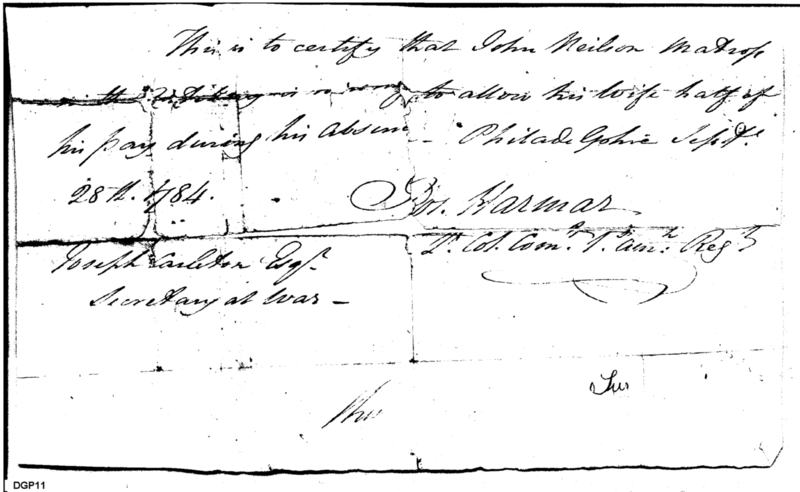 This is to certify that John Neilson Matross
in the Artillery is willing to allow his Wife half of
his pay during his absence — Philadelphia Septr.
28th. 1784.
Jos. Harmar
Lt. Col. Comt. 1st. Amn. Regt.
Joseph Carleton Esqr.
Secretary at War —
DGP11